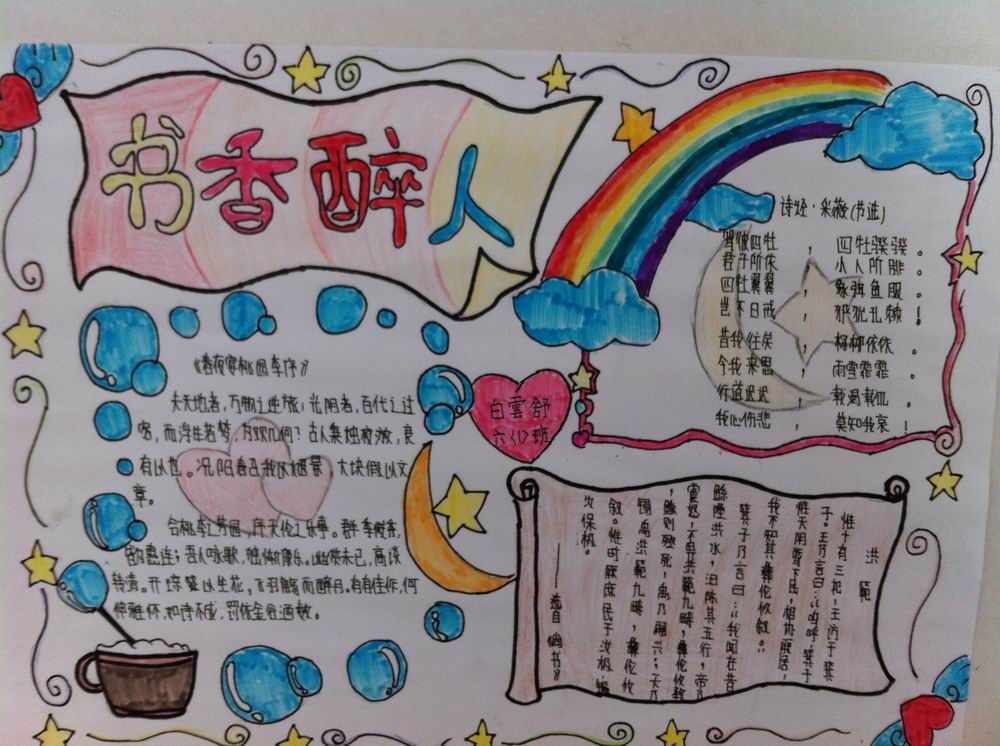 书香醉人
《春夜宴桃园李序》
夫天地者，万物之逆旅；光阴者，百代之过
客，而浮生若梦，为欢几何？古人秉烛夜游，良
有以也。况阳春召我以烟景，大块假以文
章。
会桃李之芳园，序天伦之乐事。群季俊秀，
皆为惠连；吾人咏歌，独惭康乐。幽赏未已，高谈
转清。开琼筵以坐花，飞羽觞而醉月。有佳作，何
伸雅怀，如诗不成，罚依金谷酒数。
白雲舒
六(1)班
诗经·采薇(节选)
驾彼四牡，四牡骙骙。
君子所依，小人所腓。
四牡翼翼，象弭鱼服。
岂不日戒，猃狁孔棘！
昔我往矣，杨柳依依。
今我来思，雨雪霏霏。
行道迟迟，载渴载饥。
我心伤悲，莫知我哀！
洪範
惟十有三祀，王访于箕
子。王乃言曰：“呜呼，箕子
惟天阴骘下民，相协厥居，
我不知其彝伦攸叙。”
箕子乃言曰：“我闻在昔
鲧陻洪水，汩陈其五行，帝乃
震怒，不畀洪範九畴，彝伦攸斁
，鲧则殛死，禹乃嗣兴。天乃
锡禹洪範九畴，彝伦攸
叙。惟时厥庶民于汝极，锡
汝保极。
——选自《尚书》